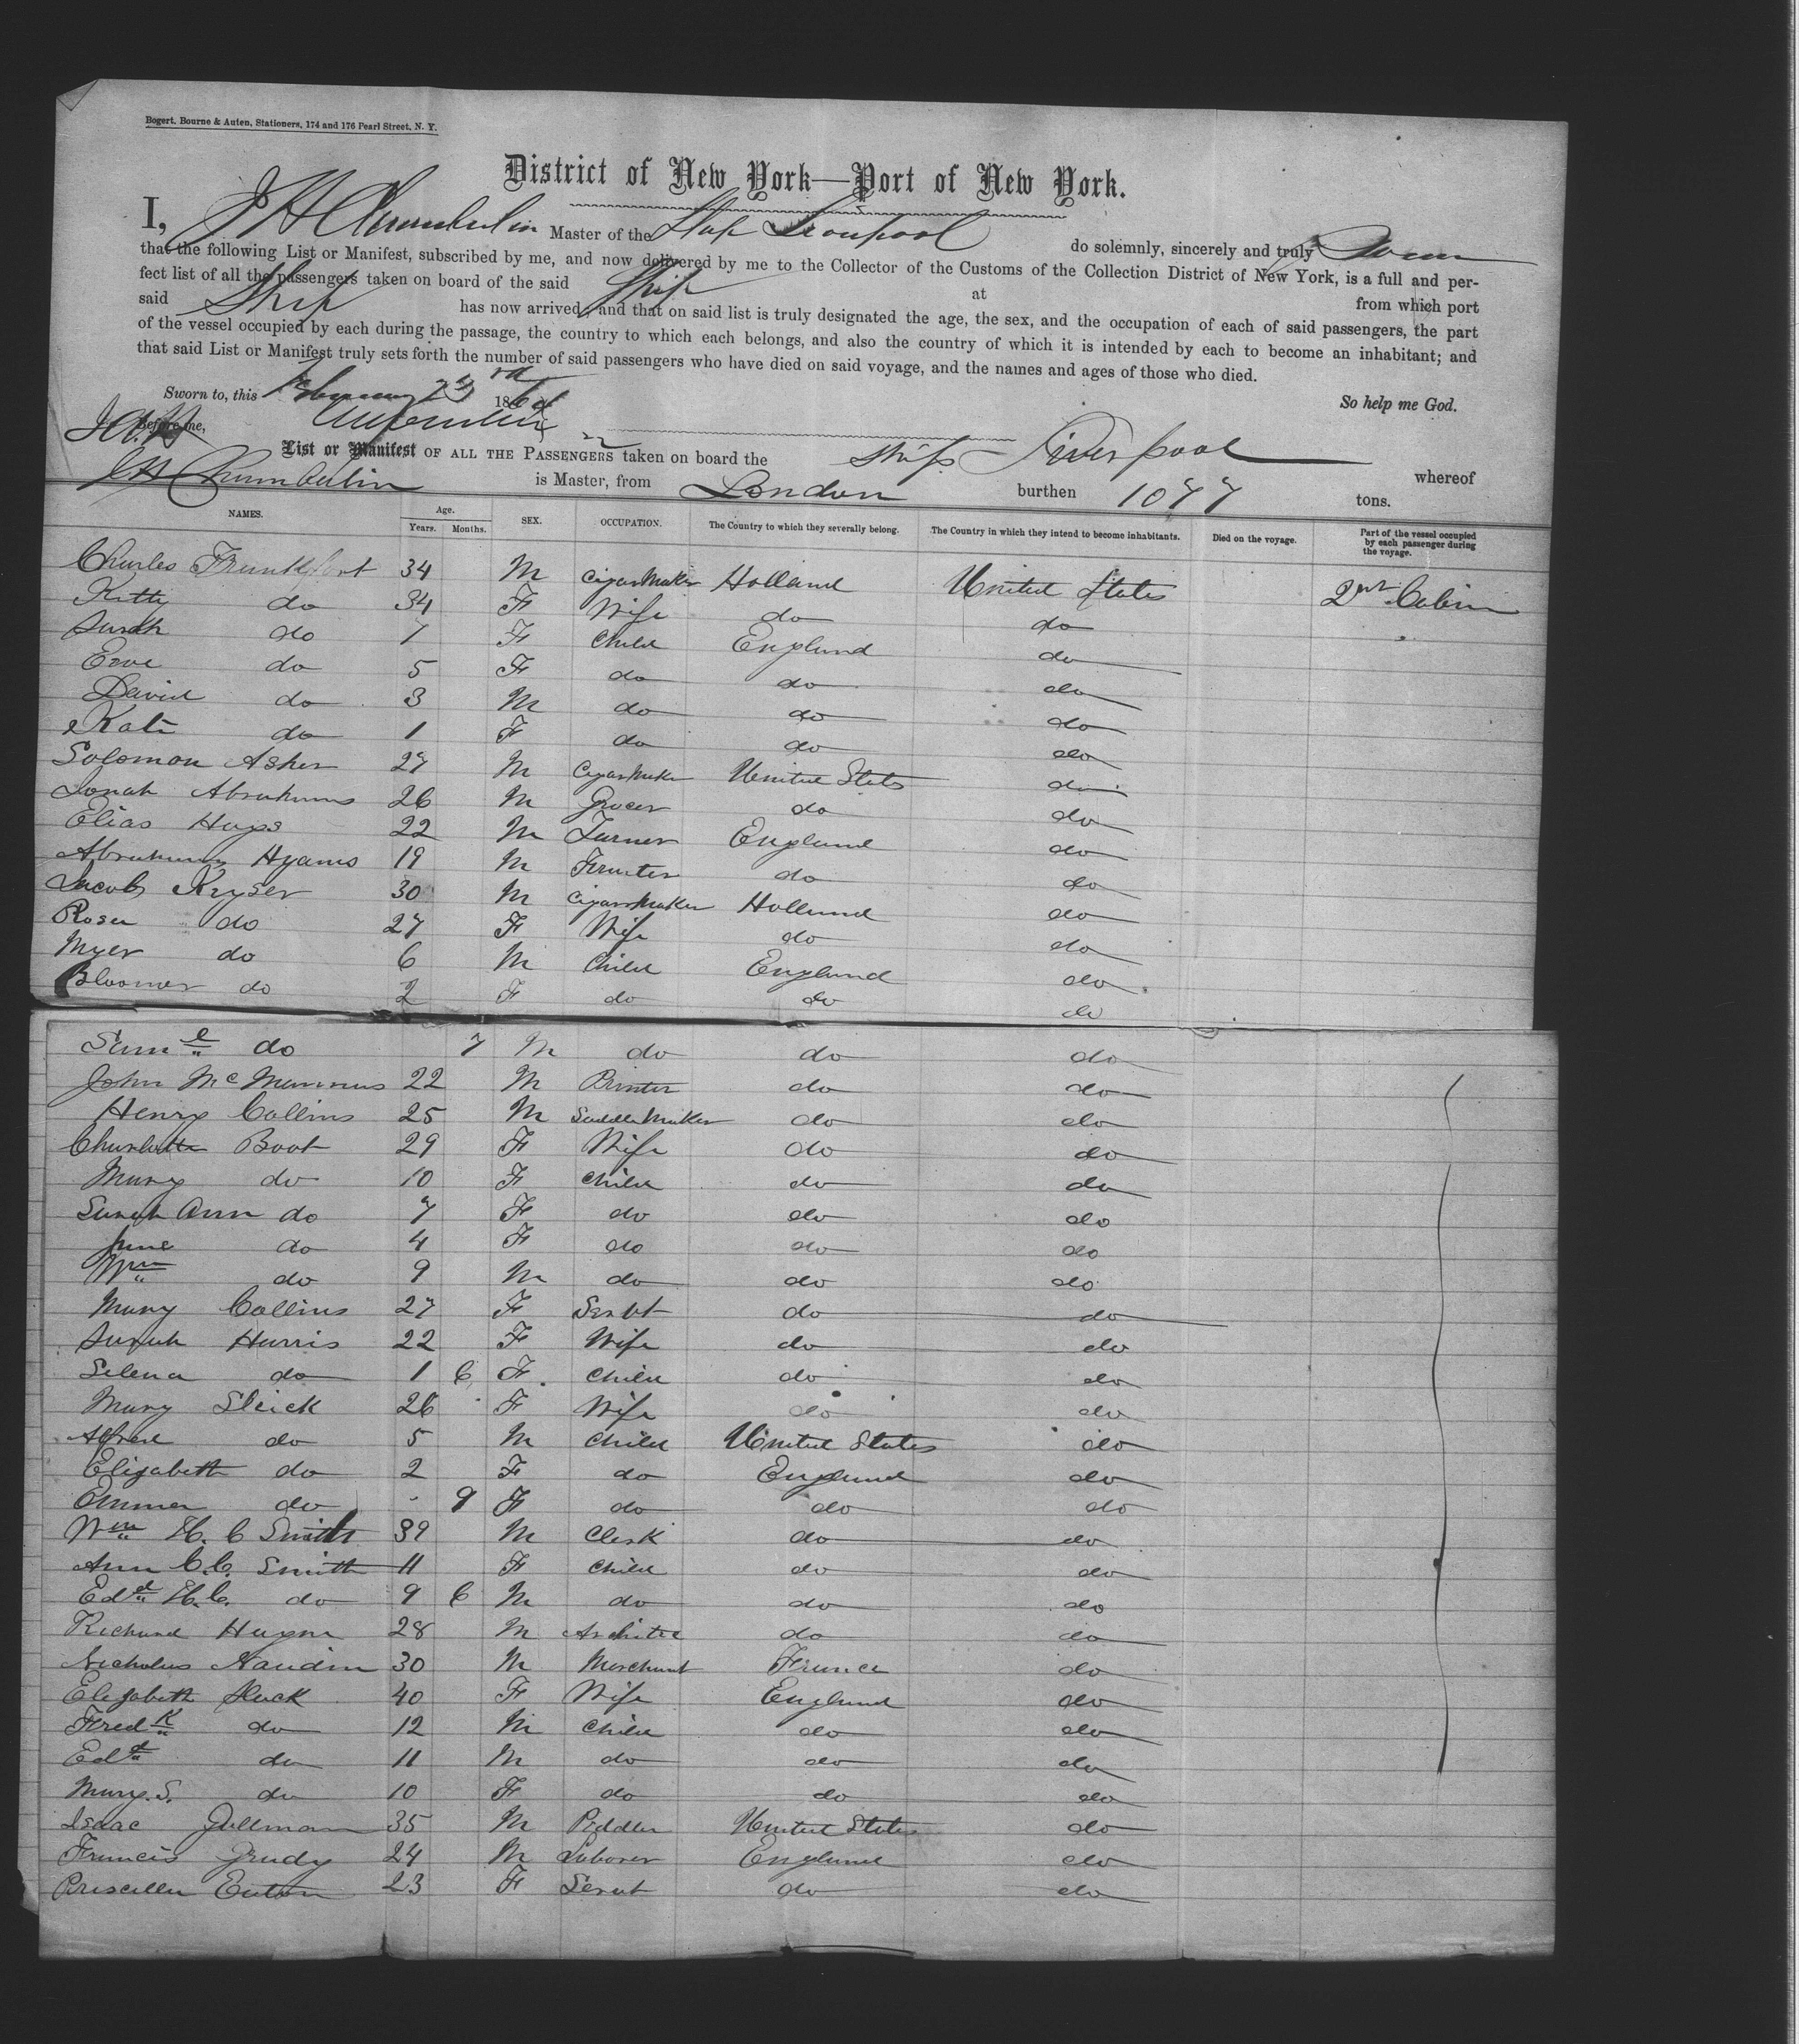 Bogert, Bourne & Auten, Stationers, 174 and 176 Pearl Street, N. Y.
District of New York—Port of New York.
I, J H Chamberlin Master of the Ship Liverpool do solemnly, sincerely and truly Swear
that the following List or Manifest, subscribed by me, and now delivered by me to the Collector of the Customs of the Collection District of New York, is a full and per-
fect list of all the passengers taken on board of the said Ship at from which port
said Ship has now arrived; and that on said list is truly designated the age, the sex, and the occupation of each of said passengers, the part
of the vessel occupied by each during the passage, the country to which each belongs, and also the country of which it is intended by each to become an inhabitant; and
that said List or Manifest truly sets forth the number of said passengers who have died on said voyage, and the names and ages of those who died.
Sworn to, this February 23rd 186 So help me God.
Before me,
List or Manifest OF ALL THE PASSENGERS taken on board the Ship Liverpool whereof
J H Chamberlin is Master, from London burthen 1077 tons.
NAMES. Age. Years. Months. SEX. OCCUPATION. The Country to which they severally belong. The Country in which they intend to become inhabitants. Died on the voyage. Part of the vessel occupied by each passenger during the voyage.
Charles Frankfort 34 M Cigar Maker Holland United States 2nd Cabin
Kitty do 34 F Wife do do
Sarah do 7 F Child England do
Eve do 5 F do do do
David do 3 M do do do
Kate do 1 F do do do
Solomon Asher 27 M Cigar Maker United States do
Jonah Abrahams 26 M Grocer do do
Elias Hays 22 M Turner England do
Abraham Hyams 19 M Fruiter do do
Jacob Keyser 30 M Cigar Maker Holland do
Rosa do 27 F Wife do do
Myer do 6 M Child England do
Bloomer do 2 F do do do
Saml do 7 M do do do
John McMannus 22 M Printer do do
Henry Collins 25 M Saddle Maker do do
Charlotte Boot 29 F Wife do do
Mary do 10 F Child do do
Sarah Ann do 7 F do do do
Jane do 4 F do do do
Wm do 9 M do do do
Mary Collins 27 F Servt do do
Sarah Harris 22 F Wife do do
Selena do 1 6 F Child do do
Mary Sleick 26 F Wife do do
Alfred do 5 M Child United States do
Elizabeth do 2 F do England do
Emmer do 9 F do do do
Wm H. C Smith 39 M Clerk do do
Ann C. C. Smith 11 F Child do do
Edd H. C. do 9 6 M do do do
Richard 28 M Architec do do
Nicholas Naudin 30 M Merchant France do
Elizabeth 40 F Wife England do
Fredk do 12 M Child do do
Edd do 11 M do do do
Mary. S. do 10 F do do do
Isaac Gellman 35 M Peddler United States do
Francis Grady 24 M Laborer England do
Priscilla Eaton 23 F Servt do do